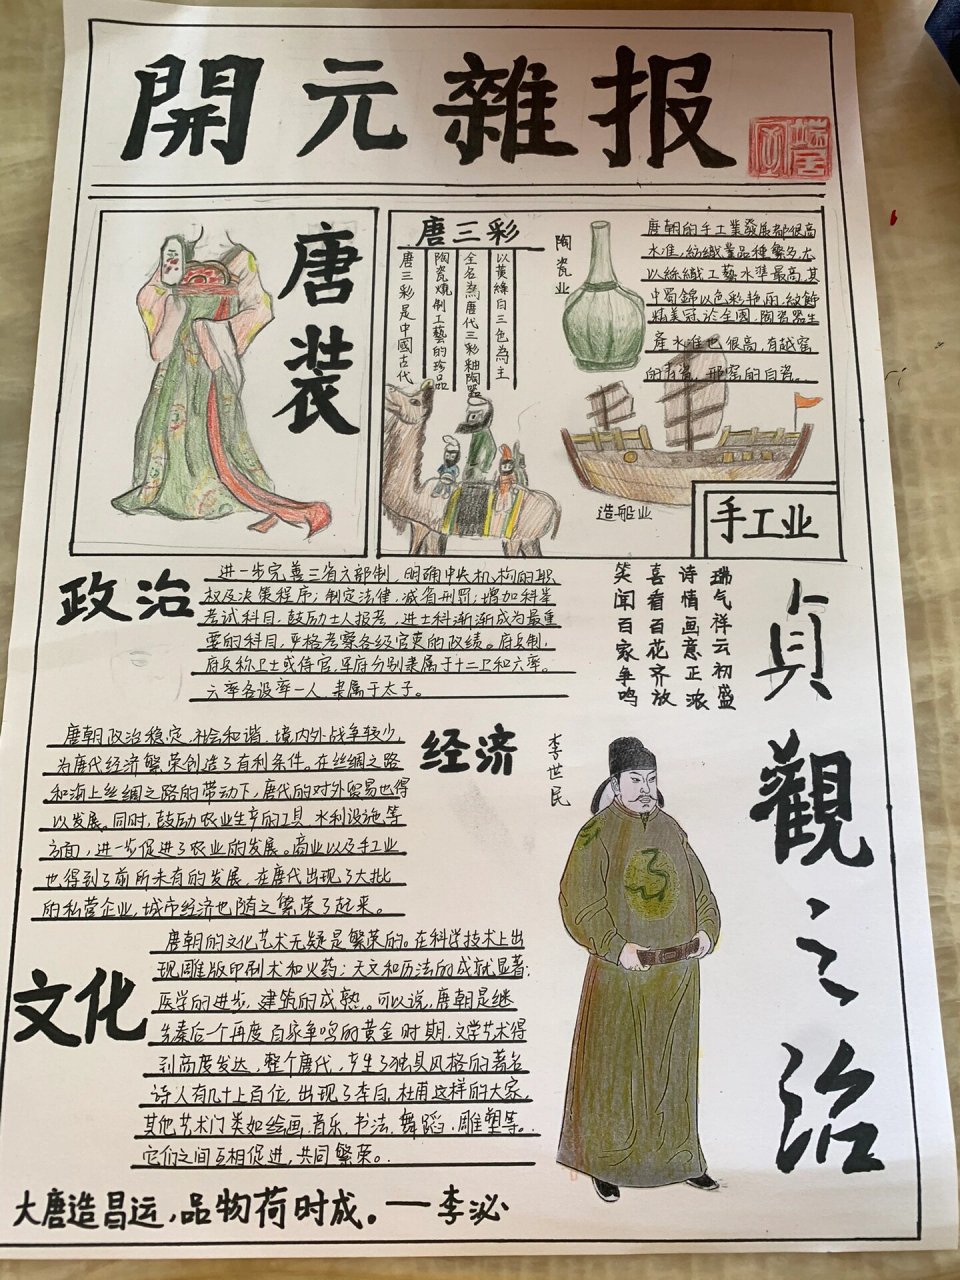 開元雜报
唐装
唐三彩
唐三彩是中國古代
陶瓷燒制工藝的珍品
全名為唐代三彩釉陶器
以黄綠白三色為主
陶瓷业
唐朝的手工業發展都很高
水准,紡織業品種繁多尤
以絲織工藝水準最高,其
中蜀錦以色彩艳丽,紋飾
精美冠於全國,陶瓷器生
産水准也很高,有越窑
的青瓷,邢窑的白瓷。
造船业
手工业
政治
进一步完善三省六部制,明确中央机构的职
权及决策程序;制定法律,减省刑罚;增加科举
考试科目,鼓励士人报考,进士科渐渐成为最重
要的科目,严格考察各级官吏的政绩。府兵制,
府兵称卫士或侍官,军府分别隶属于十二卫和六率。
六率各设率一人,隶属于太子。
瑞气祥云初盛
诗情画意正浓
喜看百花齐放
笑闻百家争鸣
貞觀之治
经济
唐朝政治稳定,社会和谐,境内外战争较少,
为唐代经济繁荣创造了有利条件。在丝绸之路
和海上丝绸之路的带动下,唐代的对外贸易也得
以发展。同时,鼓励农业生产的工具,水利设施等
方面,进一步促进了农业的发展。商业以及手工业
也得到了前所未有的发展,在唐代出现了大批
的私营企业,城市经济也随之繁荣了起来。
李世民
文化
唐朝的文化艺术无疑是繁荣的。在科学技术上出
现雕版印刷术和火药;天文和历法的成就显著;
医学的进步,建筑的成熟。可以说,唐朝是继
先秦后一个再度百家争鸣的黄金时期,文学艺术得
到高度发达,整个唐代,产生了独具风格的著名
诗人有几十上百位,出现了李白,杜甫这样的大家,
其他艺术门类如绘画,音乐,书法,舞蹈,雕塑等。
它们之间互相促进,共同繁荣。
大唐造昌运,品物荷时成。——李泌